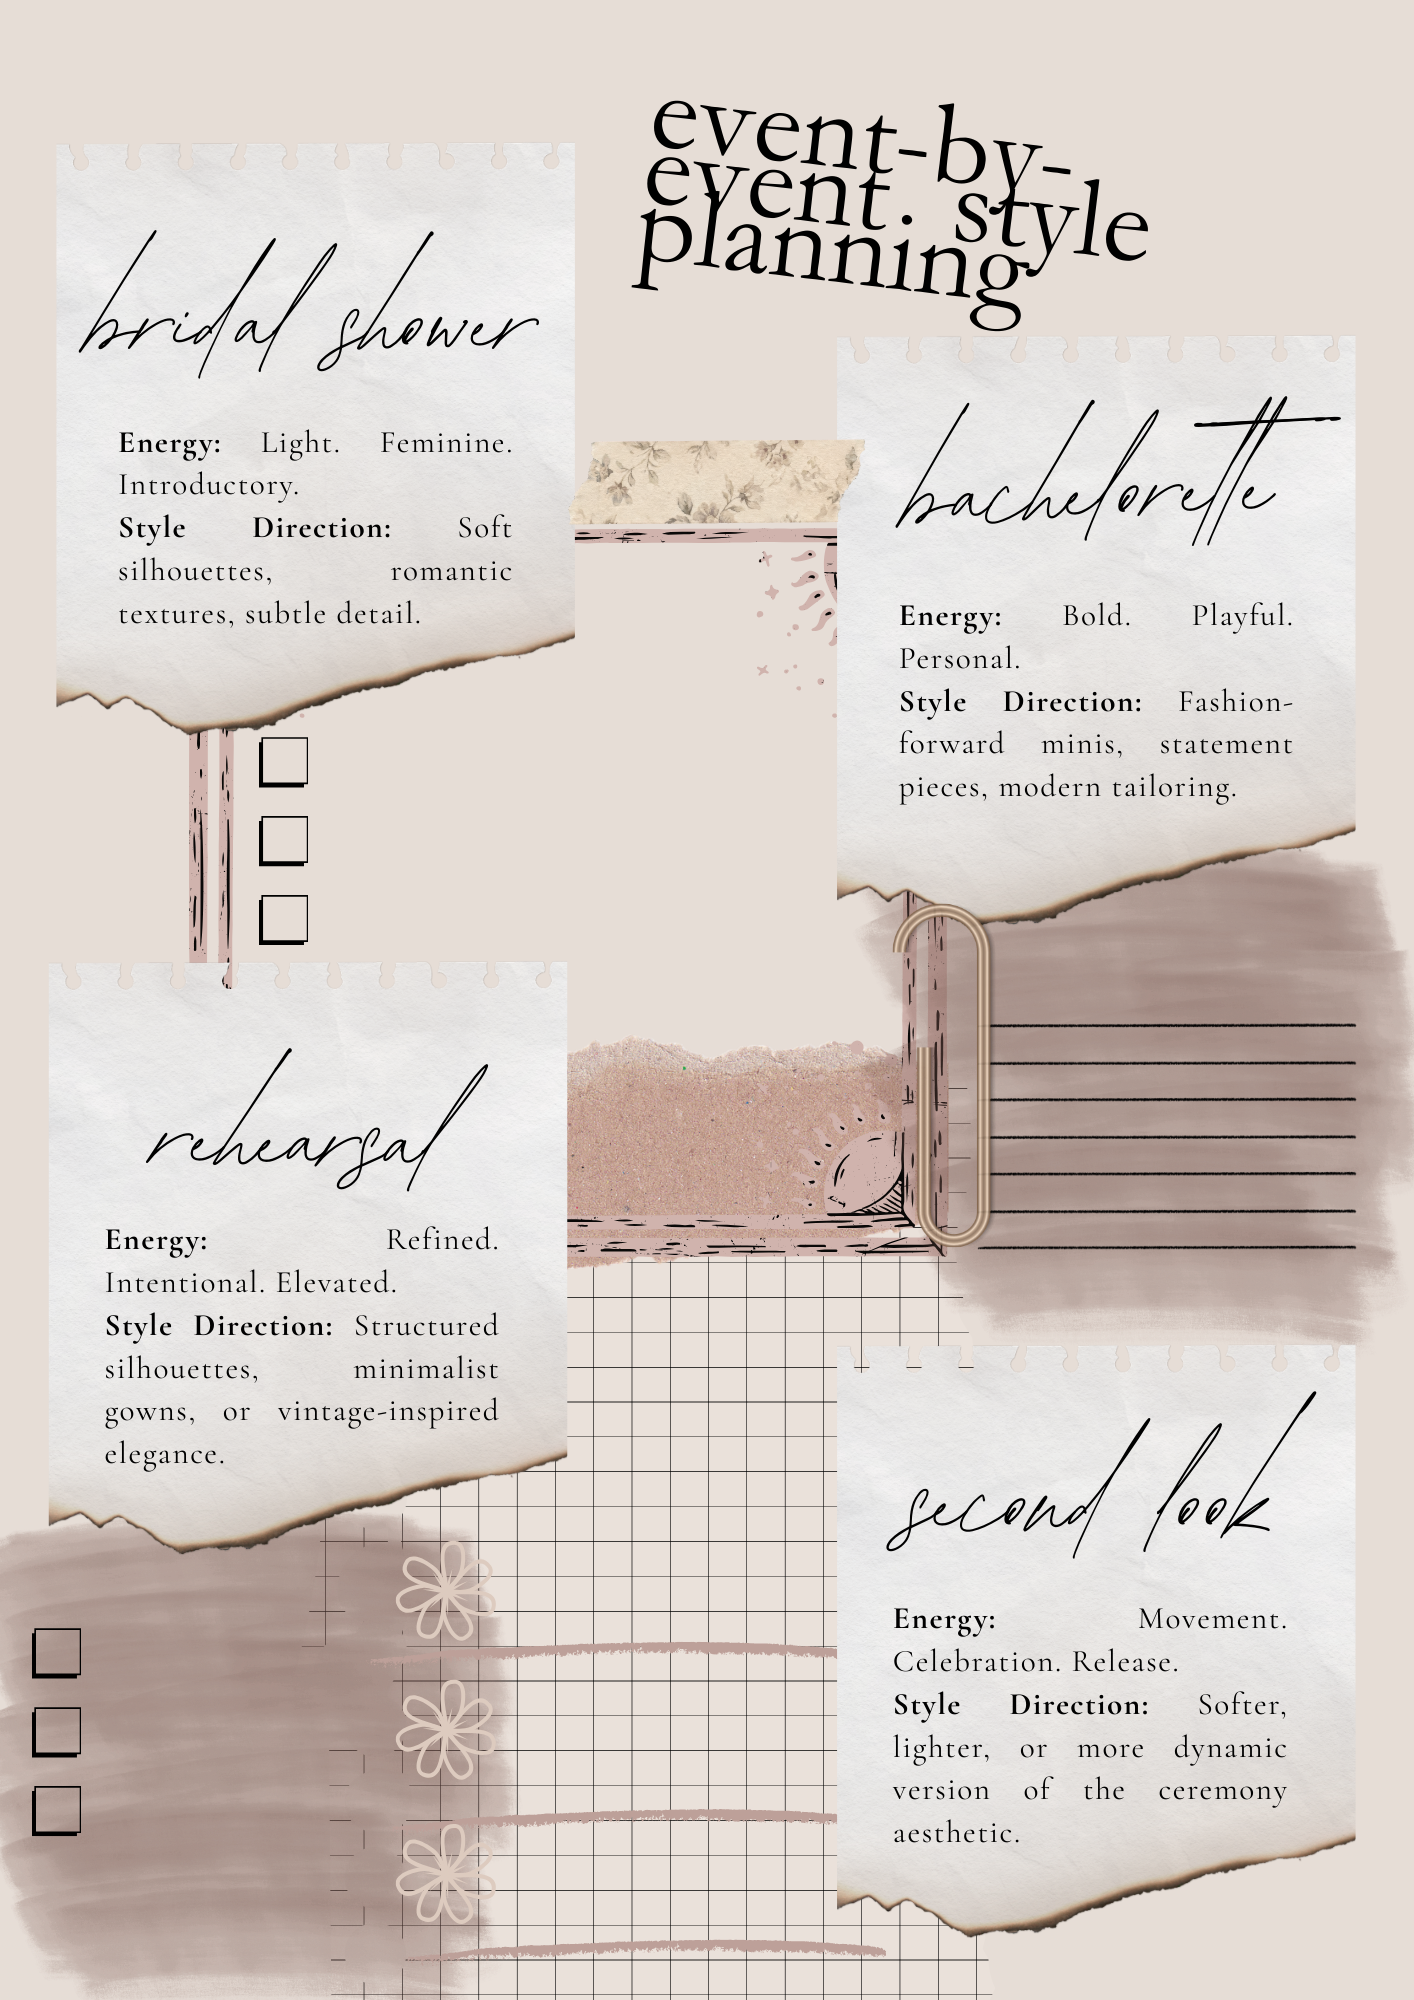 event-by-
event. style
planning
bridal shower
Energy: Light. Feminine.
Introductory.
Style Direction: Soft
silhouettes, romantic
textures, subtle detail.
bachelorette
Energy: Bold. Playful.
Personal.
Style Direction: Fashion-
forward minis, statement
pieces, modern tailoring.
rehearsal
Energy: Refined.
Intentional. Elevated.
Style Direction: Structured
silhouettes, minimalist
gowns, or vintage-inspired
elegance.
second look
Energy: Movement.
Celebration. Release.
Style Direction: Softer,
lighter, or more dynamic
version of the ceremony
aesthetic.